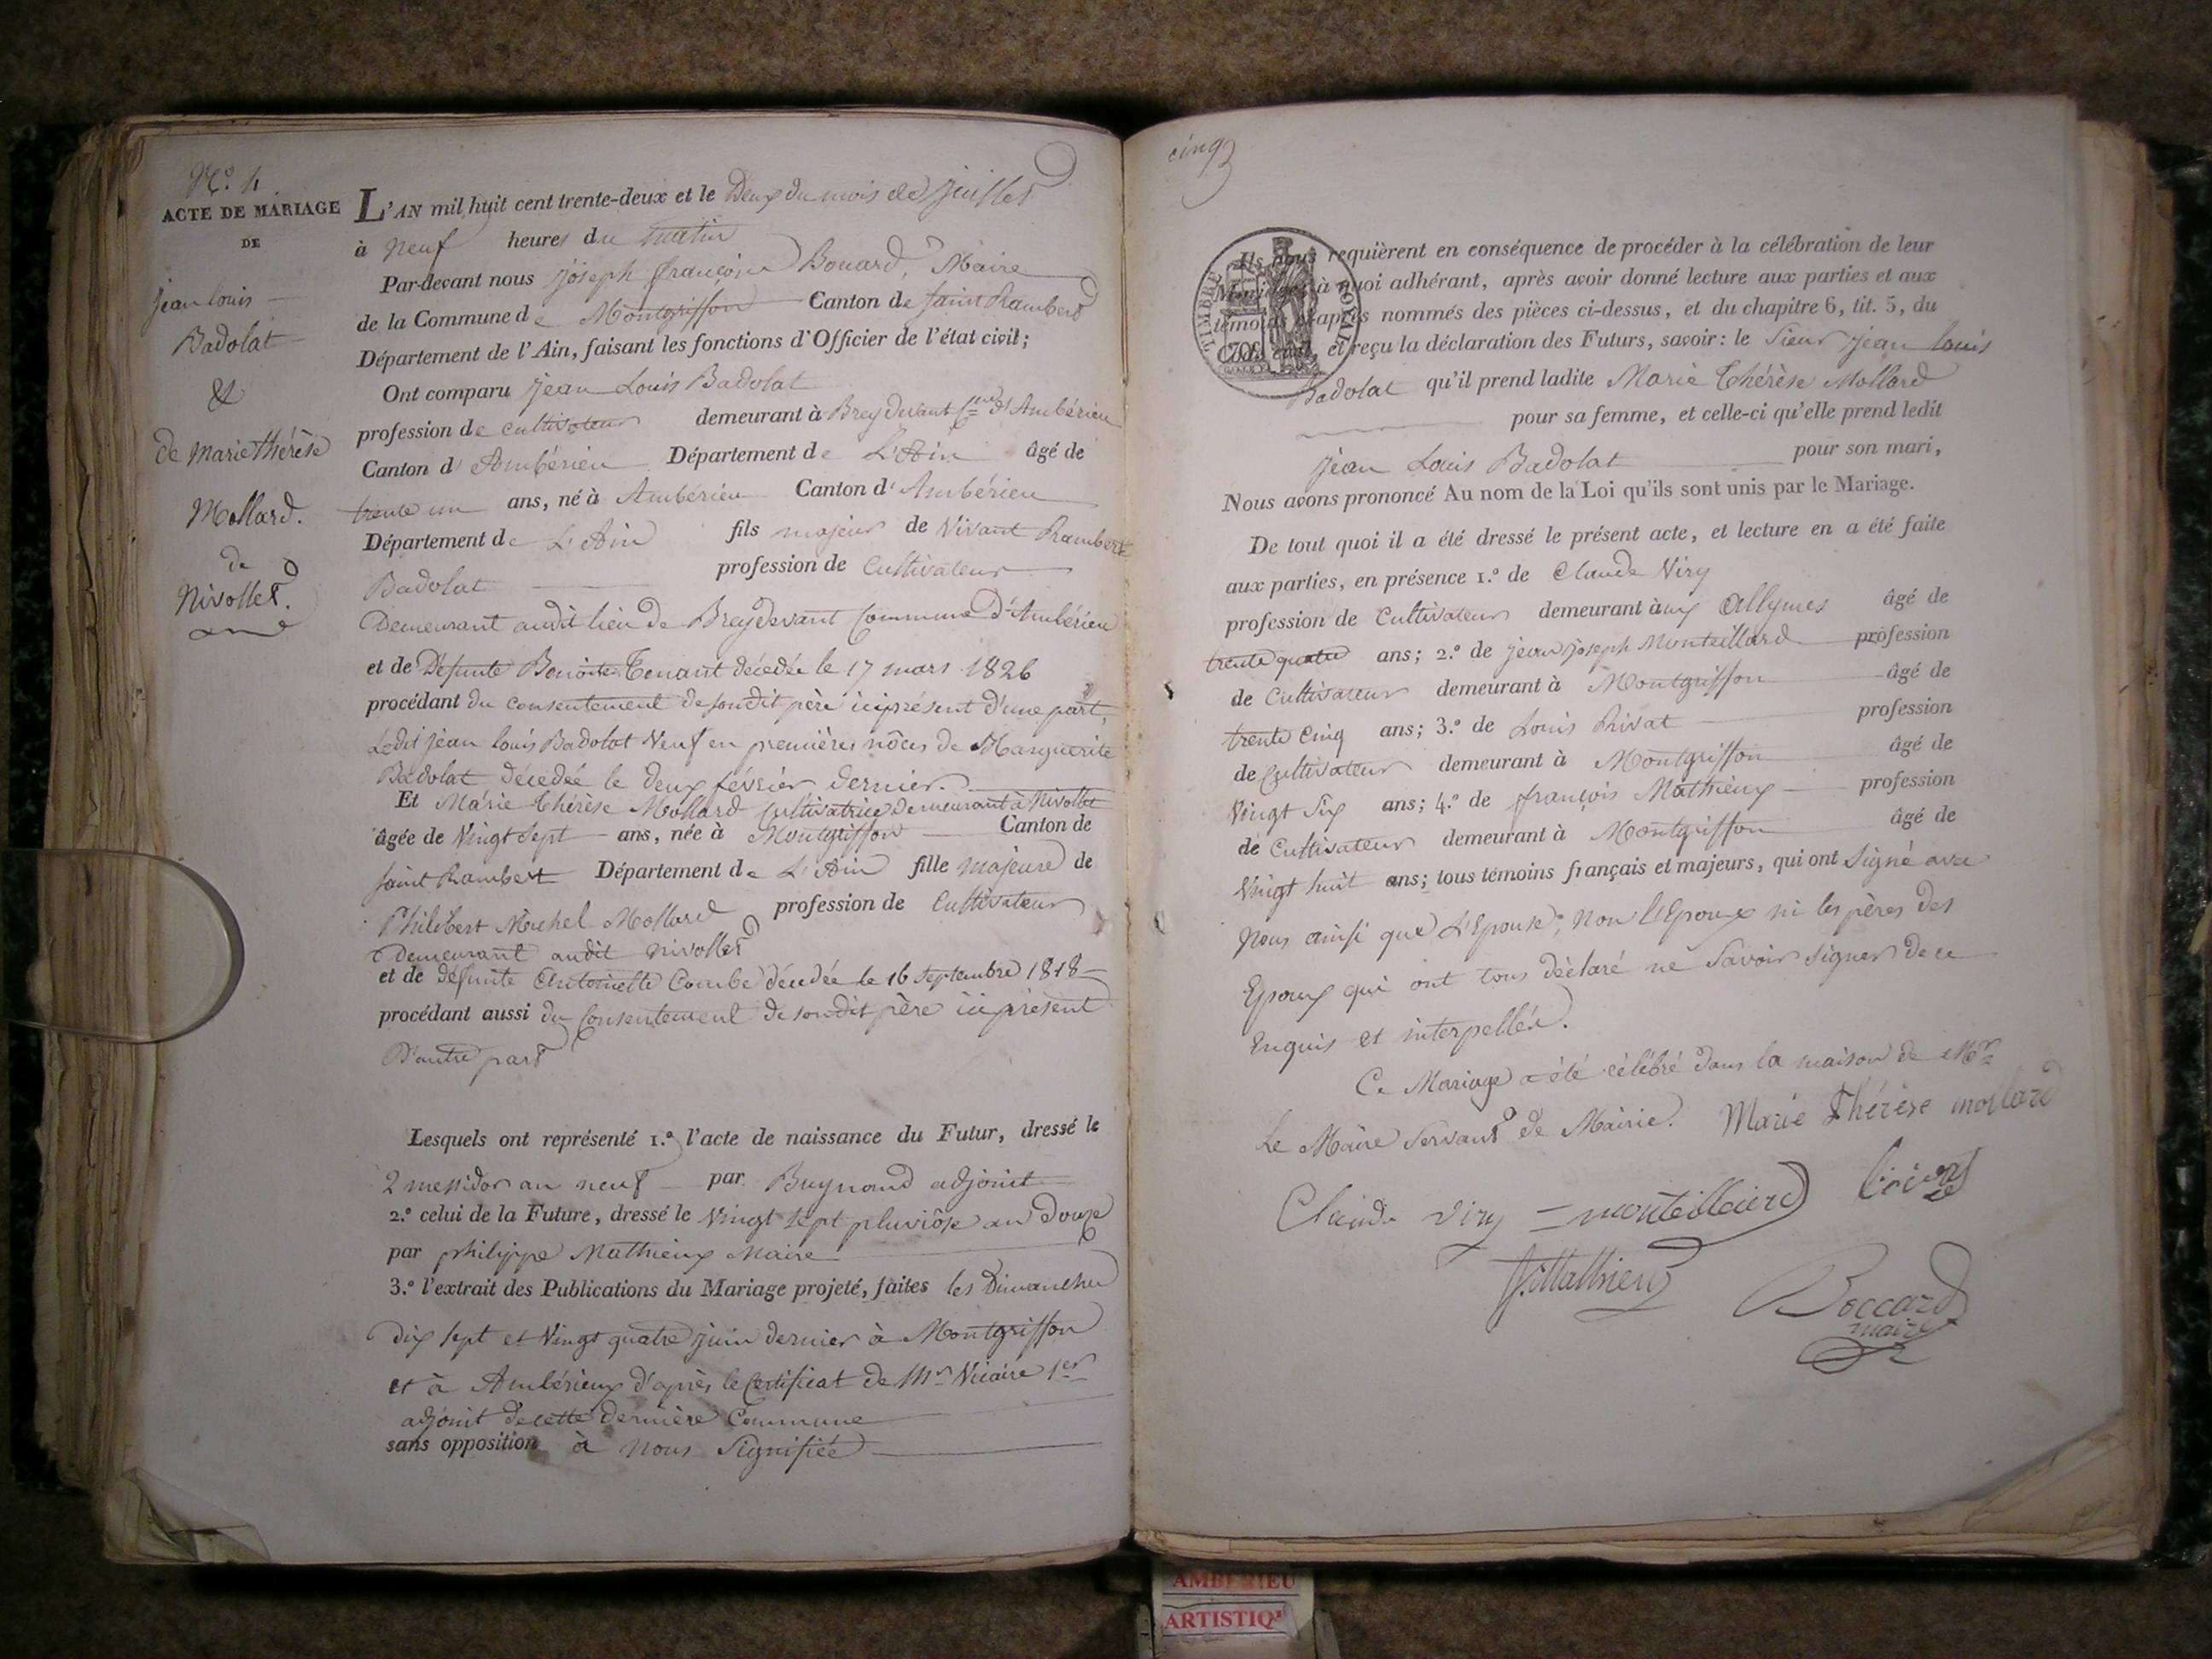 N.º 4
ACTE DE MARIAGE
DE
jean louis
Badolat
&
de Marie thérèse
Mollard.
de
Nivollet.
L'AN mil huit cent trente-deux et le Deux du mois de juillet
à Neuf heures du matin
Par-devant nous joseph françois Boccard, Maire
de la Commune de Montgriffon Canton de saint Rambert
Département de l'Ain, faisant les fonctions d'Officier de l'état civil;
Ont comparu jean Louis Badolat
profession de cultivateur demeurant à Breydevant Cne d'Ambérieu
Canton d'Ambérieu Département de L'Ain âgé de
trente un ans, né à Ambérieu Canton d'Ambérieu
Département de L'Ain fils majeur de Vivant Rambert
Badolat profession de Cultivateur
Demeurant audit lieu de Breydevant Commune d'Ambérieu
et de Défunte Benoite Tenant décédée le 17 mars 1826
procédant du consentement de sondit père ici présent d'une part,
Ledit jean louis Badolat Veuf en premières nôces de Marguerite
Badolat décedée le deux février dernier.
Et Marie thérèse Mollard Cultivatrice demeurant à Nivollet
âgée de Vingt sept ans, née à Montgriffon Canton de
saint Rambert Département de L'Ain fille majeure de
Philibert Michel Mollard profession de Cultivateur
Demeurant audit nivollet
et de défunte Antoinette Combe décédée le 16 septembre 1818
procédant aussi du Consentement de sondit père ici présent
D'autre part
Lesquels ont représenté 1.º l'acte de naissance du Futur, dressé le
2 messidor an neuf par Buynand adjoint
2.º celui de la Future, dressé le Vingt sept pluviôse an Douze
par philippe Mathieux Maire
3.º l'extrait des Publications du Mariage projeté, faites les Dimanches
Dix sept et Vingt quatre juin dernier à Montgriffon
et à Ambérieux d'après le Certificat de Mr Vicaire 1er
adjoint de cette dernière Commune
sans opposition à nous Signifiée
cinq
TIMBRE ROYAL
70c
Ils nous requièrent en conséquence de procéder à la célébration de leur
Mariage; à quoi adhérant, après avoir donné lecture aux parties et aux
témoins ci-après nommés des pièces ci-dessus, et du chapitre 6, tit. 5, du
Code civil, et reçu la déclaration des Futurs, savoir: le Sieur jean louis
Badolat qu'il prend ladite Marie thérèse Mollard
pour sa femme, et celle-ci qu'elle prend ledit
jean Louis Badolat pour son mari,
Nous avons prononcé Au nom de la Loi qu'ils sont unis par le Mariage.
De tout quoi il a été dressé le présent acte, et lecture en a été faite
aux parties, en présence 1.º de Claude Viry
profession de Cultivateur demeurant aux Allymes âgé de
trente quatre ans; 2.º de jean joseph Monteillard profession
de Cultivateur demeurant à Montgriffon âgé de
trente Cinq ans; 3.º de Louis Privat profession
de Cultivateur demeurant à Montgriffon âgé de
Vingt Six ans; 4.º de françois Mathieux profession
de Cultivateur demeurant à Montgriffon âgé de
Vingt huit ans; tous témoins français et majeurs, qui ont Signé avec
Nous ainsi que L'Epouse, Non l'Epoux ni les pères des
Epoux qui ont tous déclaré ne Savoir Signer de ce
Enquis et interpellés.
Ce Mariage a été célébré dans la maison de Mr
Le Maire Servant de Mairie. Marie thérèse mollard
Claude viry monteilliard
f. Mathieu Boccard
maire
AMBERIEU
ARTISTIQ